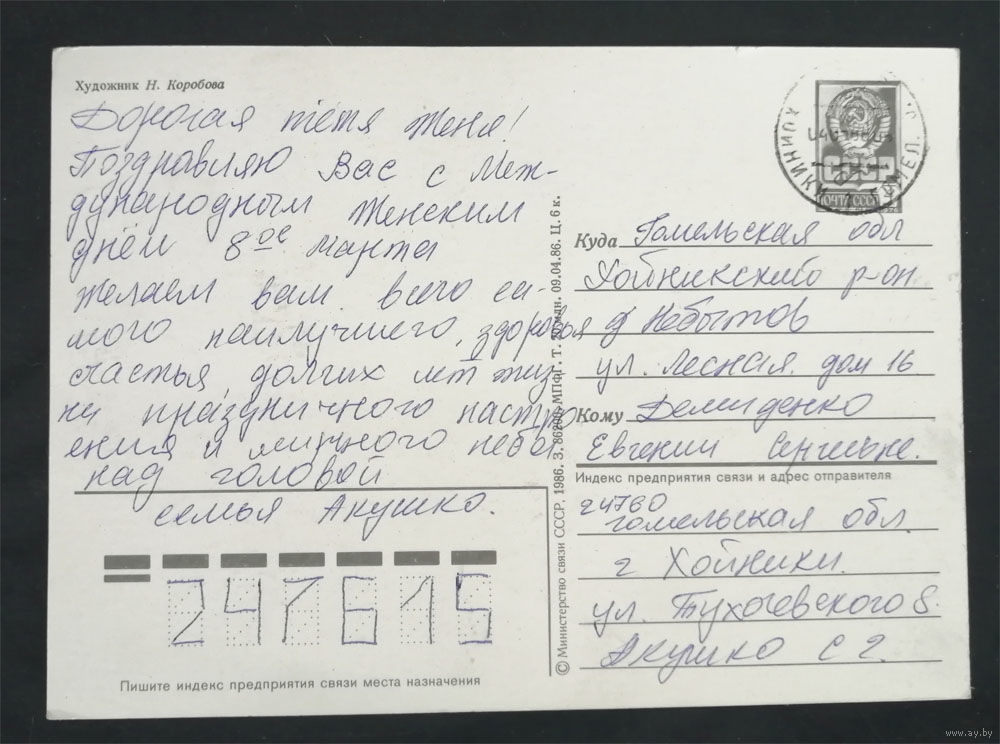 Художник Н. Коробова
Дорогая тётя Женя!
Поздравляю Вас с Меж-
дународным Женским
днём 8ое марта
желаем вам всего са-
мого наилучшего, здоровья
счастья, долгих лет жиз
ни праздничного настро
ения и мирного неба
над головой
семья Акушко.
Пишите индекс предприятия связи места назначения
247615
© Министерство связи СССР, 1986. З. 86200. МПФГ. Т. млн. 09.04.86. Ц. 6 к.
ПОЧТА СССР
ХОЙНИКИ ГОМЕЛ.
Куда Гомельская обл
Хойникский р-он
д Небытов
ул. Лесная дом 16
Кому Демиденко
Евгении Сергеевне.
Индекс предприятия связи и адрес отправителя
24760
Гомельская обл.
г Хойники.
ул. Тухачевского 8.
Акушко С Г.
www.ay.by